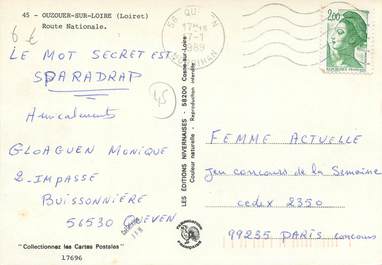 45 - OUZOUER-SUR-LOIRE (Loiret)
Route Nationale.
6 €
LE MOT SECRET EST
SPARADRAP
Amicalement
45
GLOAGUEN MONIQUE
2 - IMPASSE
BUISSONNIÈRE
56530 QUEVEN
"Collectionnez les Cartes Postales"
17696
LES ÉDITIONS NIVERNAISES - 58200 Cosne-sur-Loire
Couleur naturelle - Reproduction interdite
FABRICATION
FRANÇAISE
56 QU N
1989
MORBIHAN
2,00
FEMME ACTUELLE
Jeu concours de la Semaine
cedex 2350
99235 PARIS concours